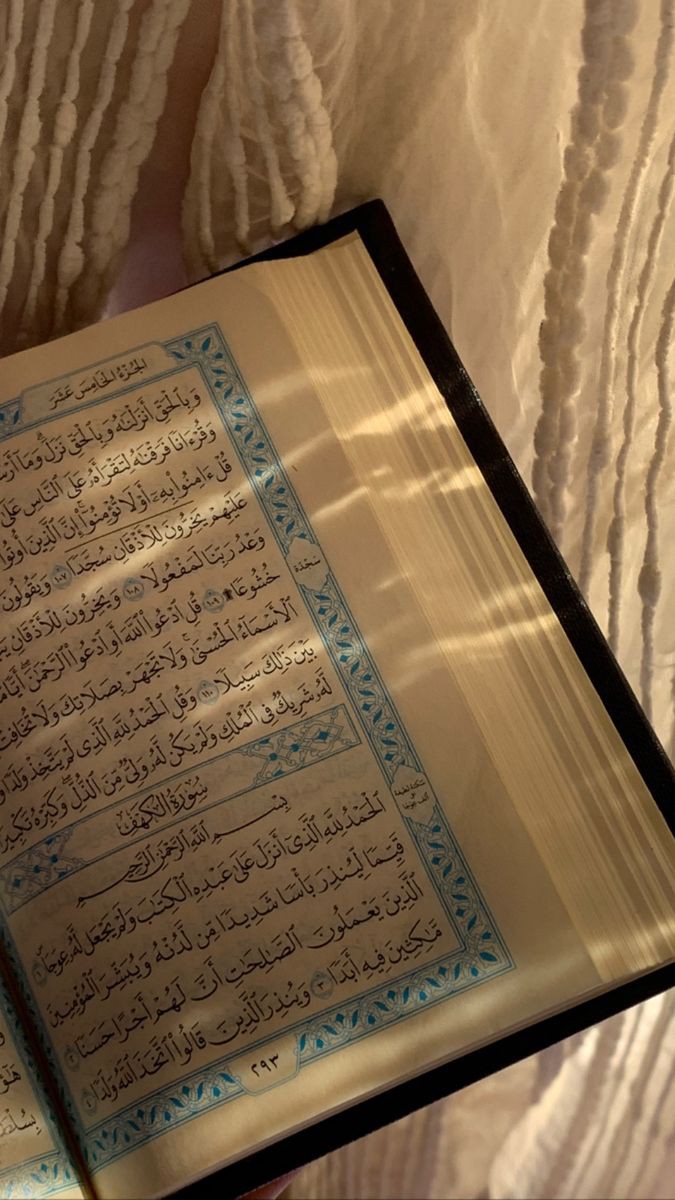 الجُزْءُ الخَامِسَ عَشَرَ
وَبِٱلْحَقِّ أَنزَلْنَٰهُ وَبِٱلْحَقِّ نَزَلَۗ وَمَآ
وَقُرْءَانًا فَرَقْنَٰهُ لِتَقْرَأَهُۥ عَلَى ٱلنَّاسِ عَلَىٰ
قُلْ ءَامِنُوا۟ بِهِۦٓ أَوْ لَا تُؤْمِنُوٓا۟ۚ إِنَّ ٱلَّذِينَ أُوتُوا۟
عَلَيْهِمْ يَخِرُّونَ لِلْأَذْقَانِ سُجَّدًا ١٠٧ وَيَقُولُونَ
وَعْدُ رَبِّنَا لَمَفْعُولًا ١٠٨ وَيَخِرُّونَ لِلْأَذْقَانِ
خُشُوعًا۩ ١٠٩ قُلِ ٱدْعُوا۟ ٱللَّهَ أَوِ ٱدْعُوا۟ ٱلرَّحْمَٰنَۖ أَيًّا
ٱلْأَسْمَآءُ ٱلْحُسْنَىٰۚ وَلَا تَجْهَرْ بِصَلَاتِكَ وَلَا تُخَافِتْ
بَيْنَ ذَٰلِكَ سَبِيلًا ١١٠ وَقُلِ ٱلْحَمْدُ لِلَّهِ ٱلَّذِى لَمْ يَتَّخِذْ وَلَدًا
لَّهُۥ شَرِيكٌ فِى ٱلْمُلْكِ وَلَمْ يَكُن لَّهُۥ وَلِىٌّ مِّنَ ٱلذُّلِّۖ وَكَبِّرْهُ تَكْبِيرًا
سَجْدَة
سُورَةُ الكَهْفِ
بِسْمِ ٱللَّهِ ٱلرَّحْمَٰنِ ٱلرَّحِيمِ
ٱلْحَمْدُ لِلَّهِ ٱلَّذِىٓ أَنزَلَ عَلَىٰ عَبْدِهِ ٱلْكِتَٰبَ وَلَمْ يَجْعَل لَّهُۥ عِوَجَاۜ ١
قَيِّمًا لِّيُنذِرَ بَأْسًا شَدِيدًا مِّن لَّدُنْهُ وَيُبَشِّرَ ٱلْمُؤْمِنِينَ
ٱلَّذِينَ يَعْمَلُونَ ٱلصَّٰلِحَٰتِ أَنَّ لَهُمْ أَجْرًا حَسَنًا ٢
مَّٰكِثِينَ فِيهِ أَبَدًا ٣ وَيُنذِرَ ٱلَّذِينَ قَالُوا۟ ٱتَّخَذَ ٱللَّهُ وَلَدًا ٤
٢٩٣